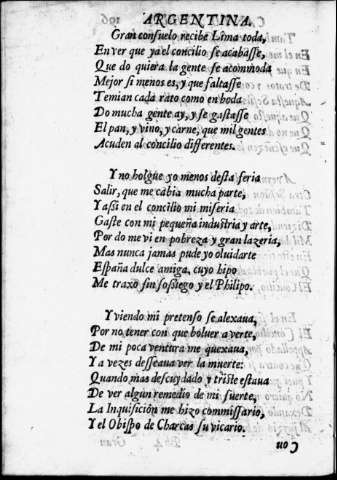 ARGENTINA.
Gran consuelo recibe Lima toda,
En ver que ya el concilio se acabasse,
Que do quiera la gente se acommoda
Mejor si menos es, y que faltasse
Temian cada rato como en boda
Do mucha gente ay, y se gastasse
El pan, y vino, y carne, que mil gentes
Acuden al concilio differentes.
Y no holgue yo menos desta feria
Salir, que me cabia mucha parte,
Y assi en el concilio mi miseria
Gaste con mi pequeña industria y arte,
Por do me vi en pobreza y gran lazeria,
Mas nunca jamas pude yo oluidarte
España dulce amiga, cuyo hipo
Me traxo sin sossiego y el Philipo.
Y viendo mi pretenso se alexaua,
Por no tener con que boluer a verte,
De mi poca ventura me quexaua,
Y a vezes desseaua ver la muerte:
Quando mas descuydado y triste estaua
De ver algun remedio de mi suerte,
La Inquisición me hizo commissario,
Y el Obispo de Charcas su vicario.
Con